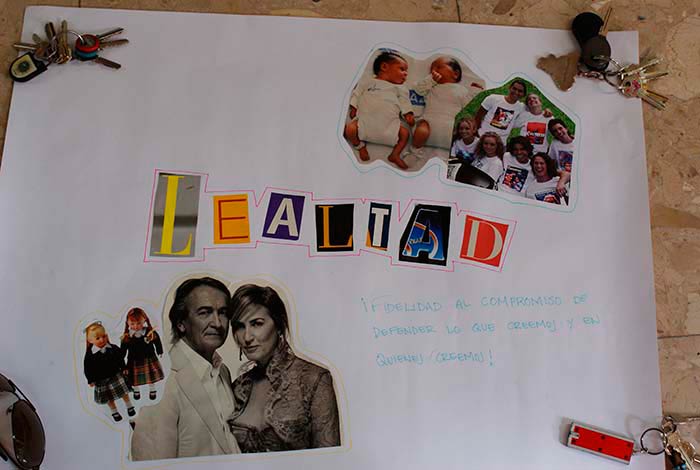 LEALTAD
¡FIDELIDAD AL COMPROMISO DE
DEFENDER LO QUE CREEMOS Y EN
QUIENES CREEMOS!